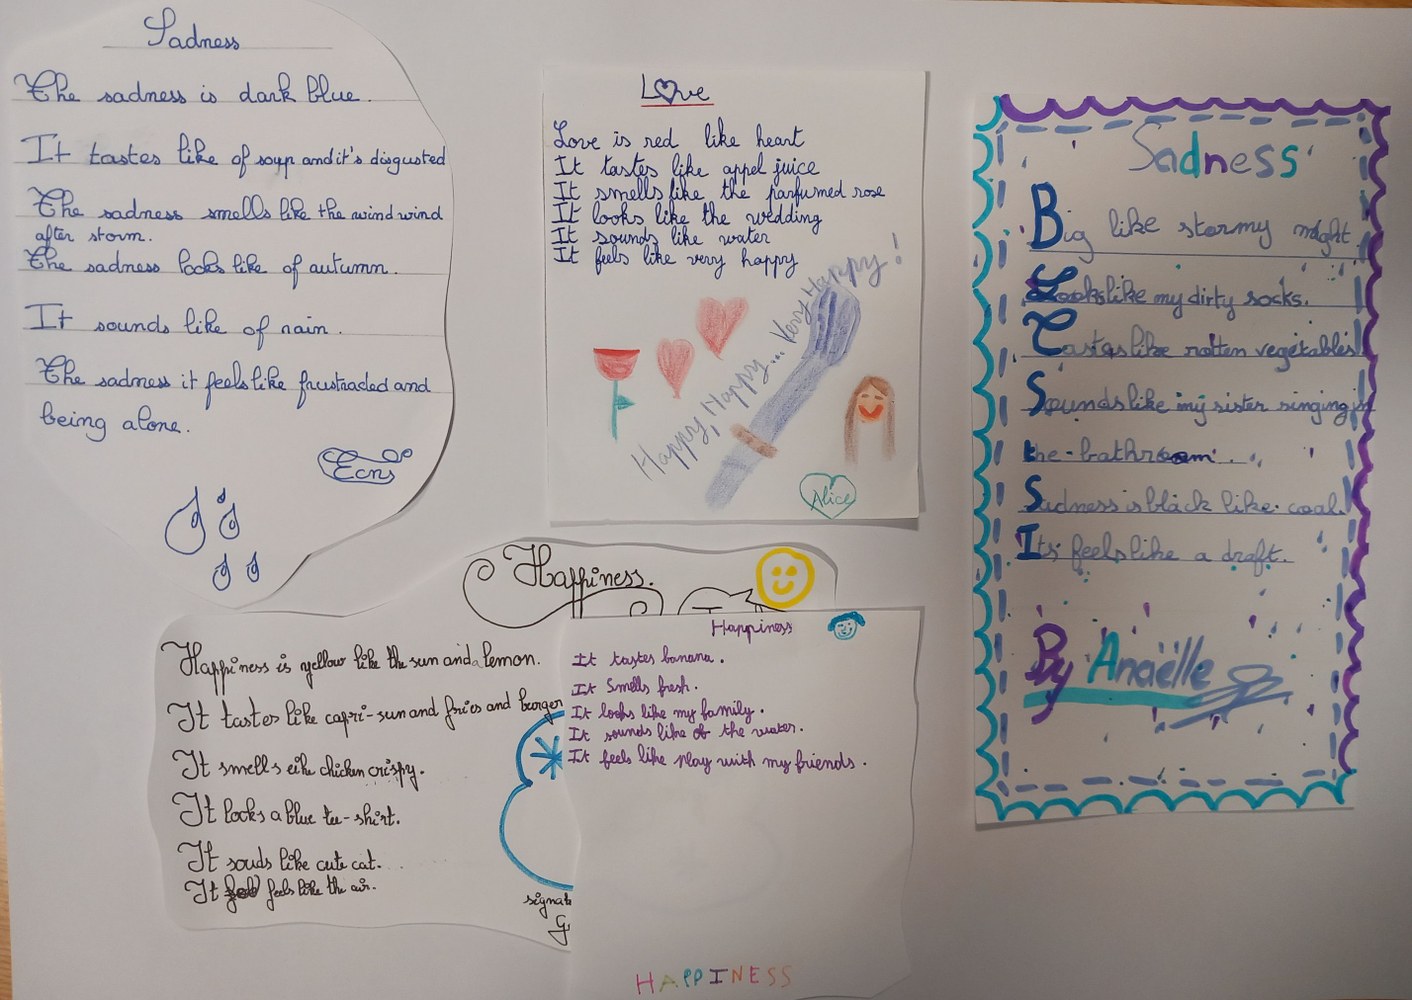 Sadness
The sadness is dark blue.
It tastes like of soyp and it's disgusted
The sadness smells like the wind wind
after storm.
The sadness looks like of autumn.
It sounds like of rain.
The sadness it feels like frustraded and
being alone.
Love
Love is red like heart
It tastes like appel juice
It smells like the parfumed rose
It looks like the wedding
It sounds like water
It feels like very happy
Happy, Happy... Very Happy!
Alice
Sadness
Big like stormy night.
Looks like my dirty socks.
Tastes like rotten vegetables
Sounds like my sister singing in
the bathroom.
Sadness is black like coal.
It's feels like a draft.
By Anaëlle
Happiness.
Happiness is yellow like the sun and a lemon.
It tastes like capri-sun and fries and burger
It smells like chicken crispy.
It looks a blue tee-shirt.
It souds like cute cat.
It feels like the air.
signat
G
Happiness
It tastes banana.
It smells fresh.
It looks like my family.
It sounds like of the water.
It feels like play with my friends.
HAPPINESS